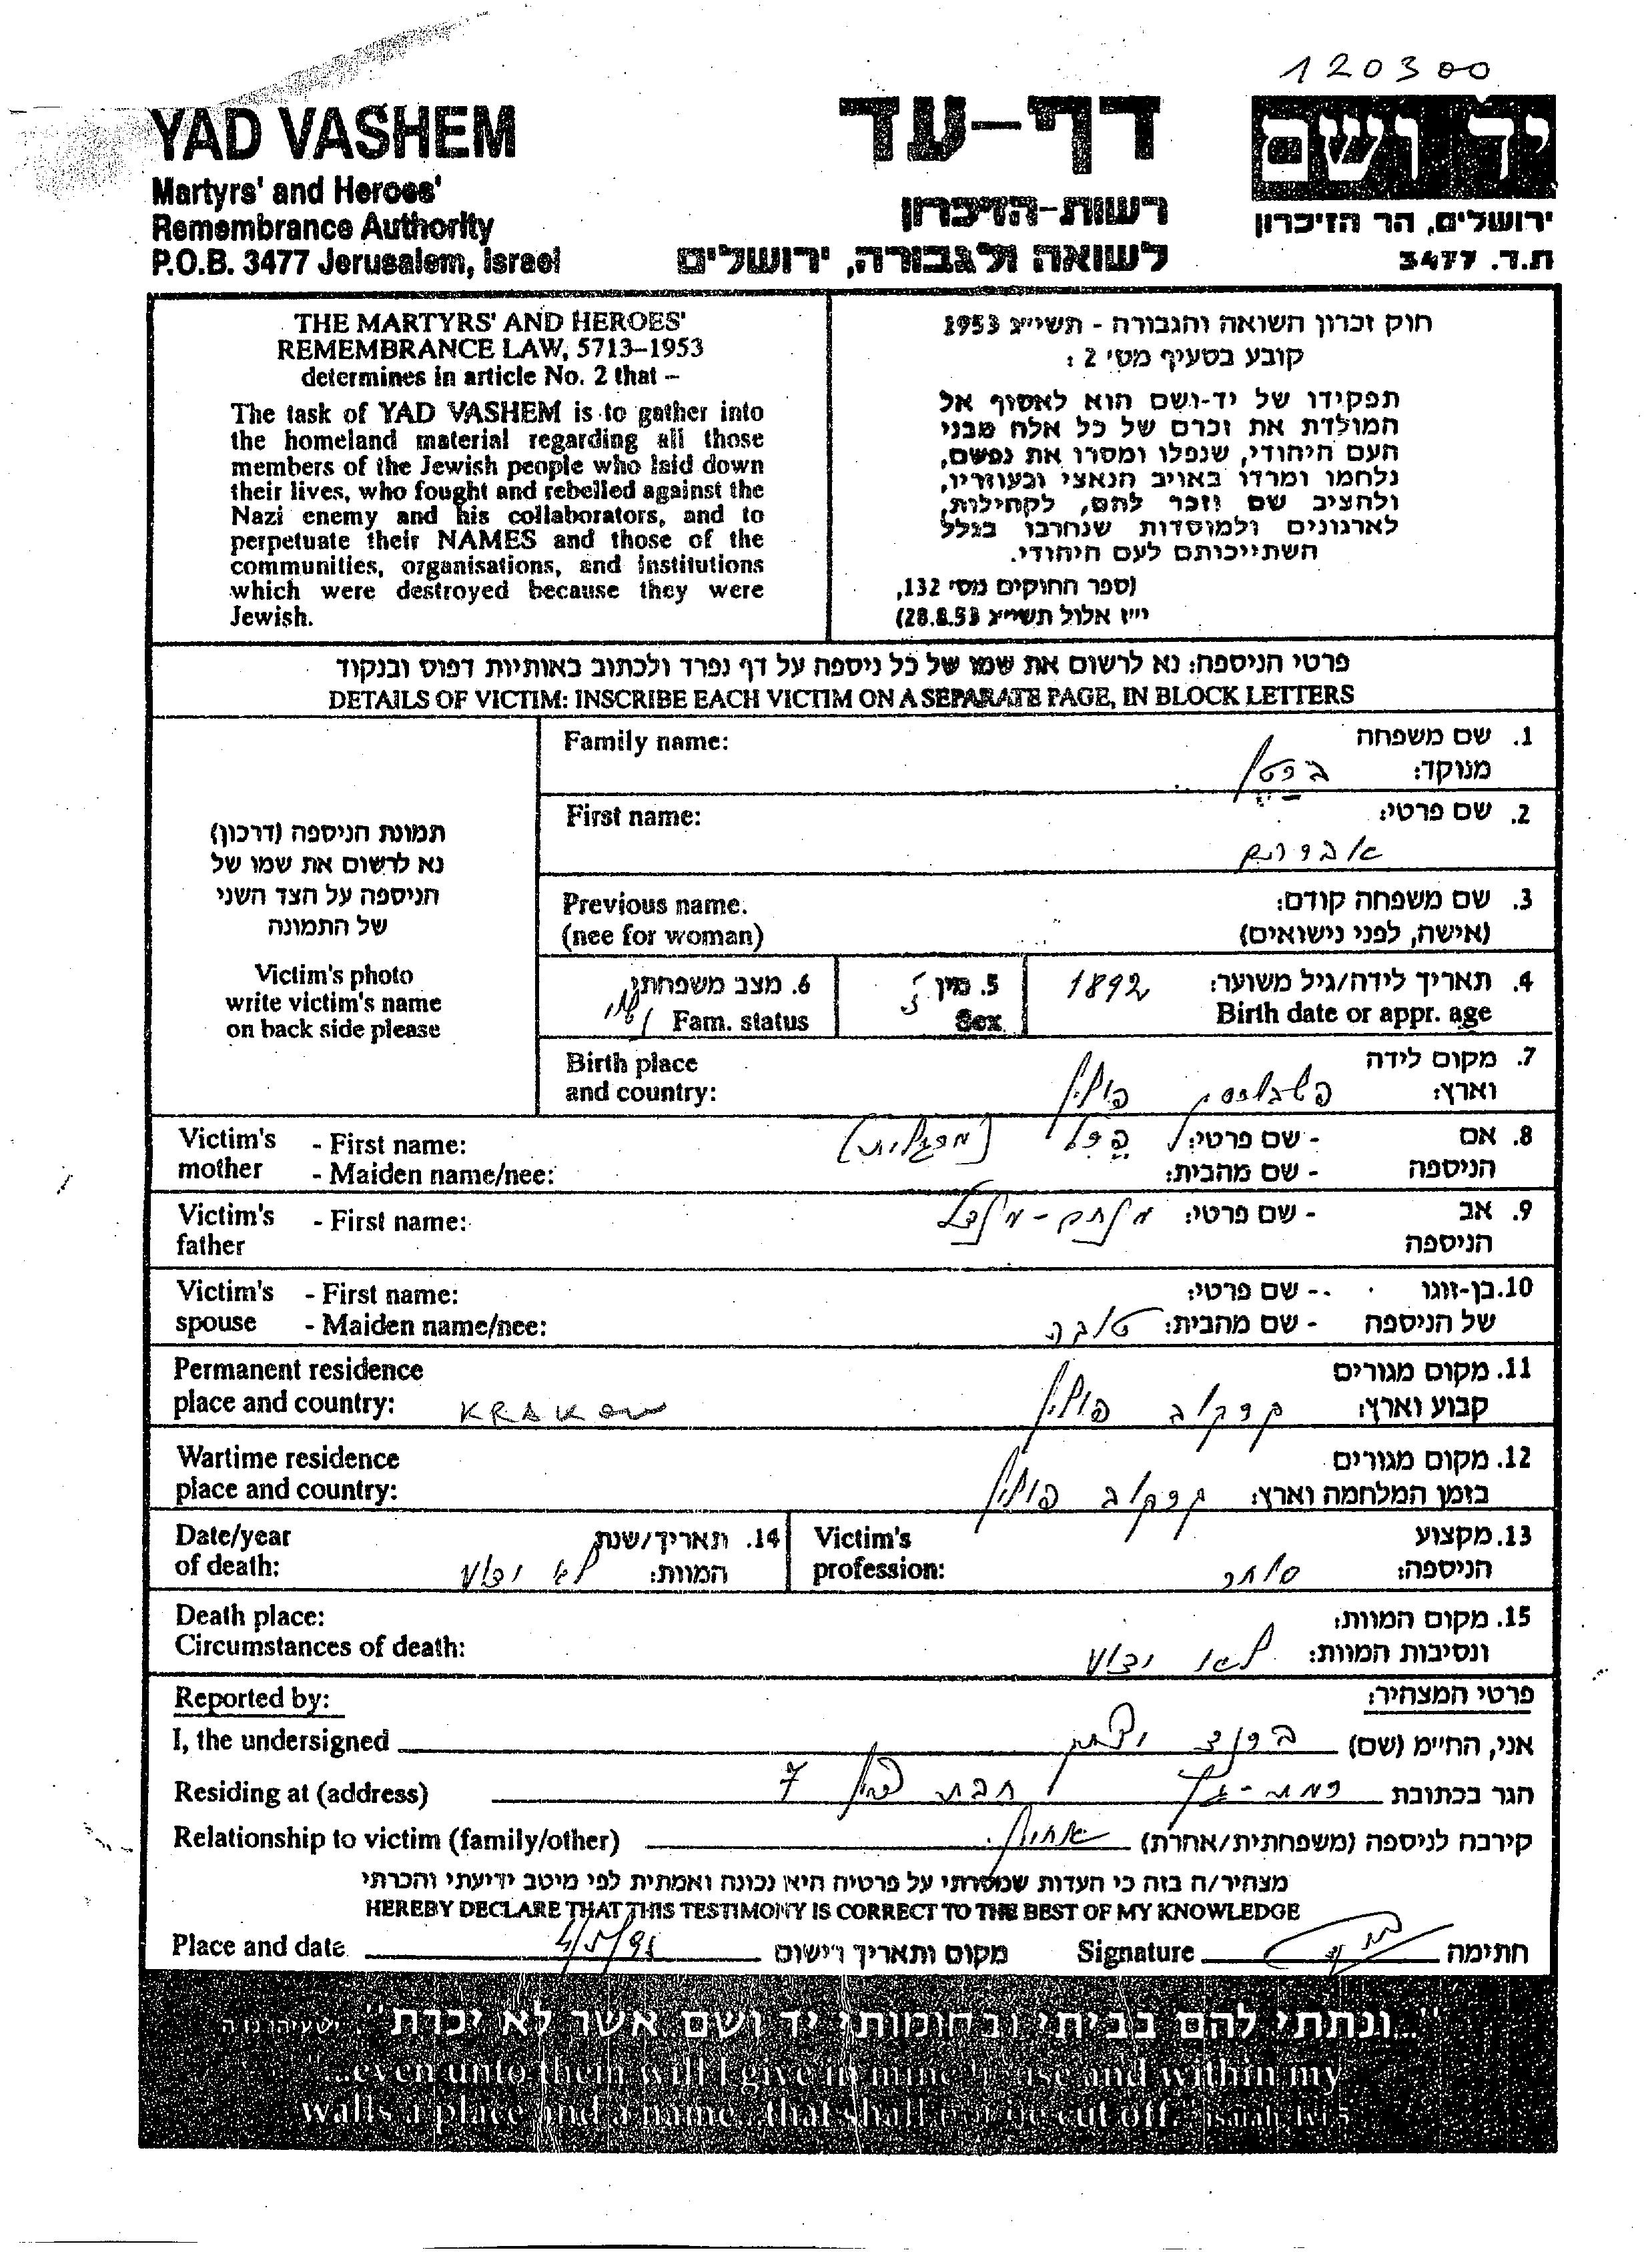 120300
YAD VASHEM
Martyrs' and Heroes'
Remembrance Authority
P.O.B. 3477 Jerusalem, Israel
דף-עד
רשות-הזיכרון
לשואה ולגבורה, ירושלים
יד ושם
ירושלים, הר הזיכרון
ת.ד. 3477
THE MARTYRS' AND HEROES'
REMEMBRANCE LAW, 5713–1953
determines in article No. 2 that –
The task of YAD VASHEM is to gather into
the homeland material regarding all those
members of the Jewish people who laid down
their lives, who fought and rebelled against the
Nazi enemy and his collaborators, and to
perpetuate their NAMES and those of the
communities, organisations, and institutions
which were destroyed because they were
Jewish.
חוק זכרון השואה והגבורה - תשי״ג 1953
קובע בסעיף מס׳ 2 :
תפקידו של יד-ושם הוא לאסוף אל
המולדת את זכרם של כל אלה מבני
העם היהודי, שנפלו ומסרו את נפשם,
נלחמו ומרדו באויב הנאצי ובעוזריו,
ולהציב שם וזכר להם, לקהילות,
לארגונים ולמוסדות שנחרבו בגלל
השתייכותם לעם היהודי.
(ספר החוקים מס׳ 132,
י״ז אלול תשי״ג 28.8.53)
פרטי הניספה: נא לרשום את שמו של כל ניספה על דף נפרד ולכתוב באותיות דפוס ובנקוד
DETAILS OF VICTIM: INSCRIBE EACH VICTIM ON A SEPARATE PAGE, IN BLOCK LETTERS
תמונת הניספה (דרכון)
נא לרשום את שמו של
הניספה על הצד השני
של התמונה
Victim's photo
write victim's name
on back side please
Family name:
1. שם משפחה
מנוקד:
First name:
2. שם פרטי:
אברהם
Previous name.
(nee for woman)
3. שם משפחה קודם:
(אישה, לפני נישואים)
4. תאריך לידה/גיל משוער: 1892
Birth date or appr. age
5. מין ז
Sex
6. מצב משפחתי
Fam. status נשוי
Birth place
and country:
7. מקום לידה
וארץ: פולין
Victim's - First name:
mother - Maiden name/nee:
8. אם - שם פרטי: (מרגליות)
הניספה - שם מהבית:
Victim's - First name:
father
9. אב - שם פרטי:
הניספה
Victim's - First name:
spouse - Maiden name/nee:
10. בן-זוגו - שם פרטי:
של הניספה - שם מהבית: טובה
Permanent residence
place and country: KRAKOW
11. מקום מגורים
קבוע וארץ: קרקוב פולין
Wartime residence
place and country:
12. מקום מגורים
בזמן המלחמה וארץ: קרקוב פולין
Date/year
of death:
14. תאריך/שנת
המוות: לא ידוע
Victim's
profession:
13. מקצוע
הניספה: סוחר
Death place:
Circumstances of death:
15. מקום המוות:
ונסיבות המוות: לא ידוע
Reported by:
פרטי המצהיר:
I, the undersigned
אני, החיימ (שם) יצחק
Residing at (address)
הגר בכתובת רמת-גן חבת ציון 7
Relationship to victim (family/other)
קירבה לניספה (משפחתית/אחרת) אחיין
מצהיר/ה בזה כי העדות שמסרתי על פרטיה היא נכונה ואמתית לפי מיטב ידיעתי והכרתי
HEREBY DECLARE THAT THIS TESTIMONY IS CORRECT TO THE BEST OF MY KNOWLEDGE
Place and date
מקום ותאריך רישום
Signature
חתימה
"...ונתתי להם בביתי ובחומותי יד ושם אשר לא יכרת".
"...even unto them will I give in mine house and within my
walls a place and a name...that shall not be cut off."